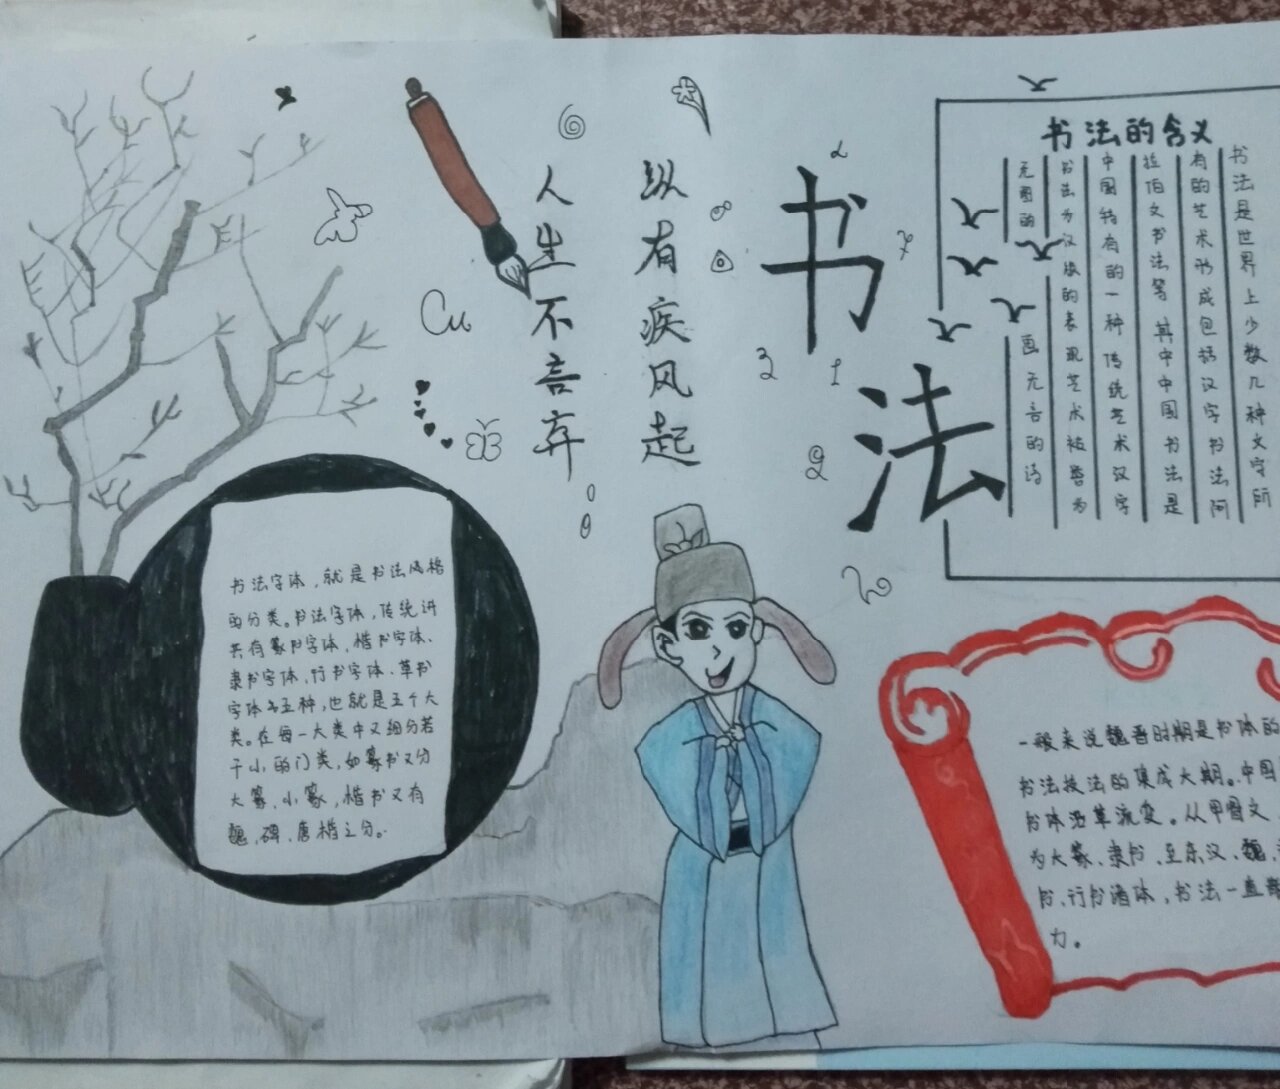 纵有疾风起
人生不言弃
书法
书法的含义
书法是世界上少数几种文字所
有的艺术形成包括汉字书法阿
拉伯文书法等其中中国书法是
中国特有的一种传统艺术汉字
书法为汉族的表现艺术被誉为
无图的
画无言的诗
Cu
书法字体，就是书法风格
的分类。书法字体，传统讲
共有篆书字体、楷书字体、
隶书字体、行书字体、草书
字体为五种，也就是五个大
类。在每一大类中又细分若
干小的门类，如篆书又分
大篆、小篆，楷书又有
魏、碑、唐楷之分。
一般来说魏晋时期是书体的
书法技法的集成大期。中国
书体沿革流变。从甲骨文
为大篆、隶书，至东汉、魏、
书、行书诸体，书法一直散
力。